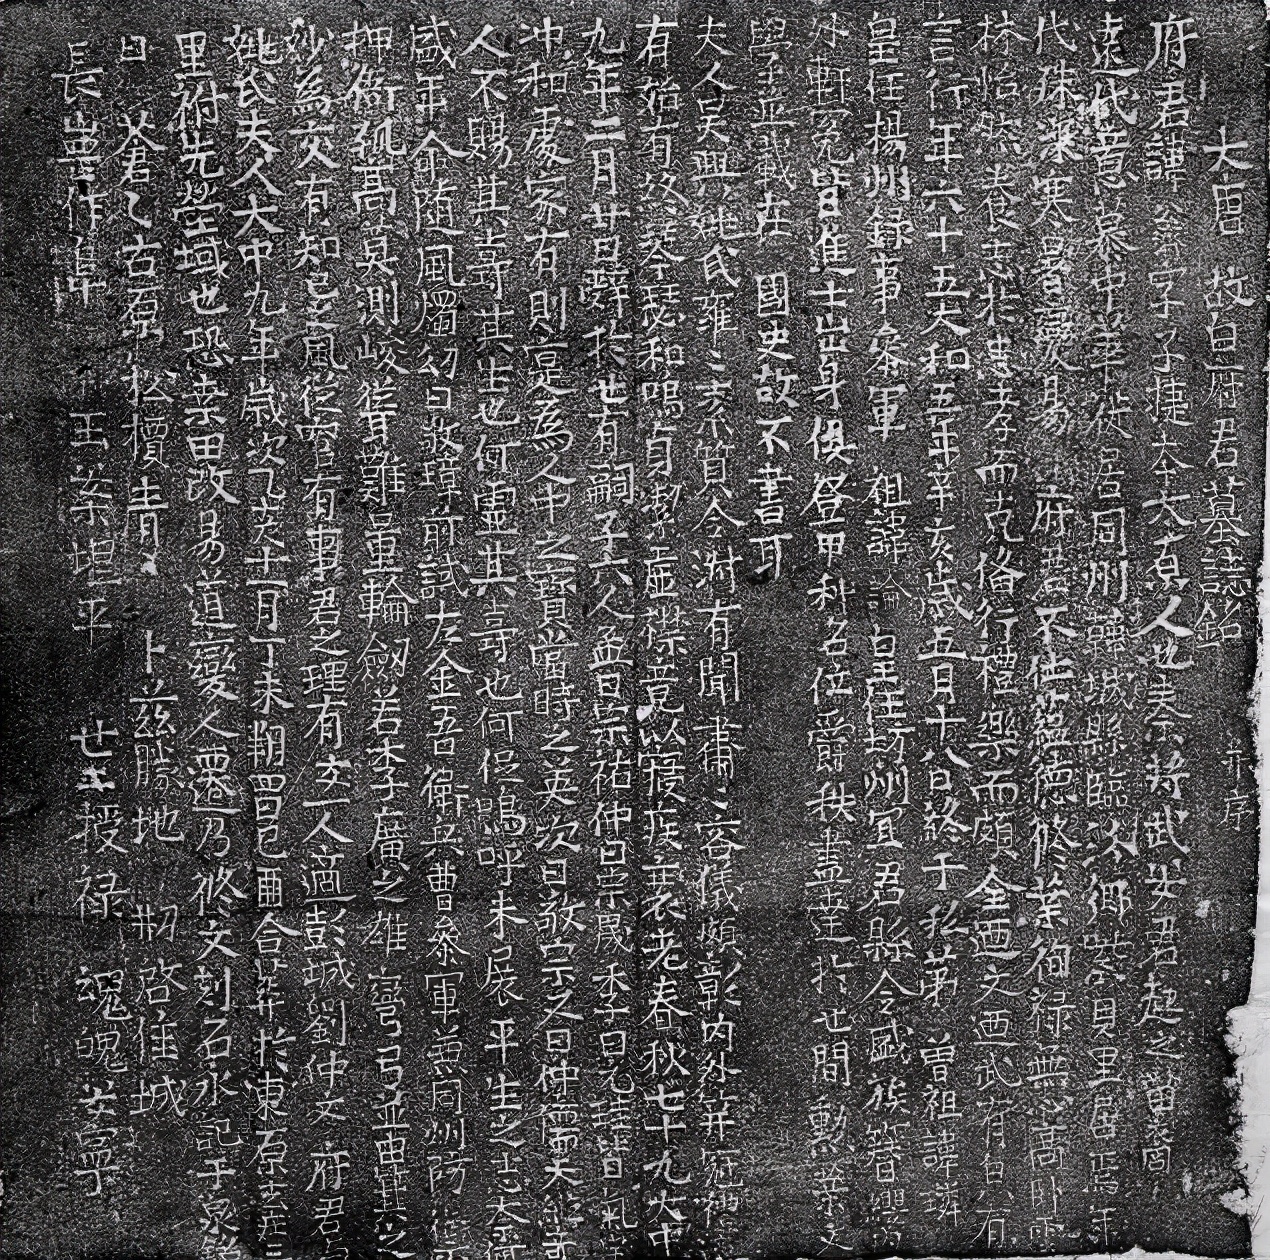 大唐故白府君墓誌銘 并序
府君諱翁字子捷本太原人也夫秦将武安君起之苗裔
遠代意慕中華從居同州韓城縣臨汾鄉裴貝里居焉年
代殊深寒暑變易 府君不仕蘊德修業徇禄無心高卧雲
林怡然養志於忠孝而克俻行禮樂而頗全迺文迺武有白有
言行年六十五大和五年辛亥歳五月十八日終于私第 曽祖諱璘
皇任揚州録事叅軍 祖諱論 皇任坊州冝君縣令盛族簮纓
外軒冕皆進士出身俱登甲科名位爵秩盡達扵世間勲業文
學等並載在 國史故不書耳
夫人吴興姚氏雍々志 質令淑有聞肅々容儀頗彰内外筓冠禮
有始有終琴瑟和鳴貞潔虚襟竟以寢疾衰老春秋七十九大中
九年二月廿日辭扵世有嗣子六人孟曰宗祐仲曰宗晟季曰元珪皆曰氣
沖和處家有則寔為人中之寶當時之英次曰敬宗又曰仲儒天
人不賜其壽其生也何靈其壽也何促嗚呼未展平生之志
盛年命随風燭幼曰敬璋前試左金吾衛兵曹叅軍兼同州防
押衙孤髙莫測峻聳難量重輪劔若李廣之雄彎弓弓並由基之
妙為交有知己之風從官有事君之理有女一人適彭城劉仲文 府君
姚氏夫人大中九年歳次乙亥十一月丁未朔四日己酉合葬扵東原去庄
里祔先塋域也恐桒田改易道變人遷乃修文刻石永記于泉
曰 蒼蒼乙古原 松檟青々 卜兹勝地 刱啓佳城
長崗作阜 玉案坦平 廿土授禄 魂魄安寧